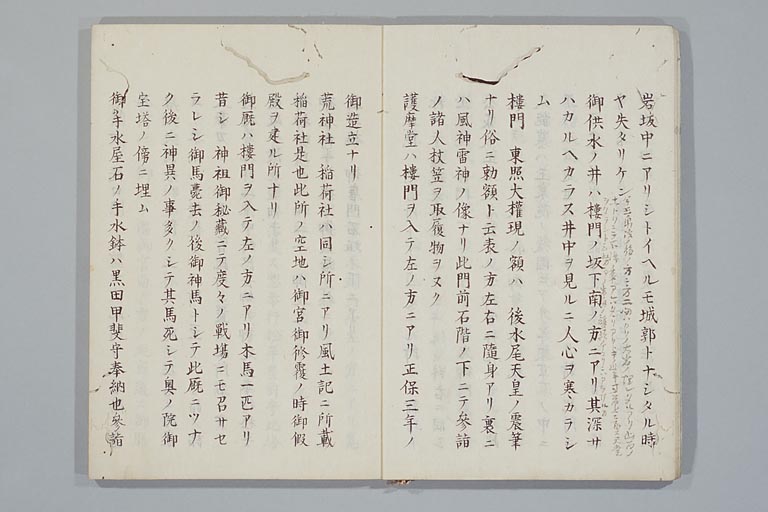 岩坂中ニアリシトイヘルモ城郭トナシタル時
ヤ失タリケン
御供水ノ井ハ樓門ノ坂下南ノ方ニアリ其深サ
ハカルヘカラス井中ヲ見ルニ人心ヲ寒カラシ
ム
樓門 東照大權現ノ額ハ 後水尾天皇ノ震筆
ナリ俗ニ勅額ト云表ノ方左右ニ隨身アリ裏ニ
ハ風神雷神ノ像ナリ此門前石階ノ下ニテ參詣
ノ諸人杖笠ヲ取履物ヲヌク
護摩堂ハ樓門ヲ入テ左ノ方ニアリ正保三年ノ
御造立ナリ
荒神社 稲荷社ハ同シ所ニアリ風土記ニ所載
稲荷社是也此所ノ空地ハ御宮御修覆ノ時御假
殿ヲ建ル所ナリ
御厩ハ樓門ヲ入テ左ノ方ニアリ木馬一匹アリ
昔シ 神祖御秘藏ニテ度々ノ戰場ニモ召サセ
ラレシ御馬薨去ノ後御神馬トシテ此厩ニツナ
ク後ニ神異ノ事多クシテ其馬死シテ奥ノ院御
宝塔ノ傍ニ埋ム
御手水屋石ノ手水鉢ハ黒田甲斐守奉納也參詣